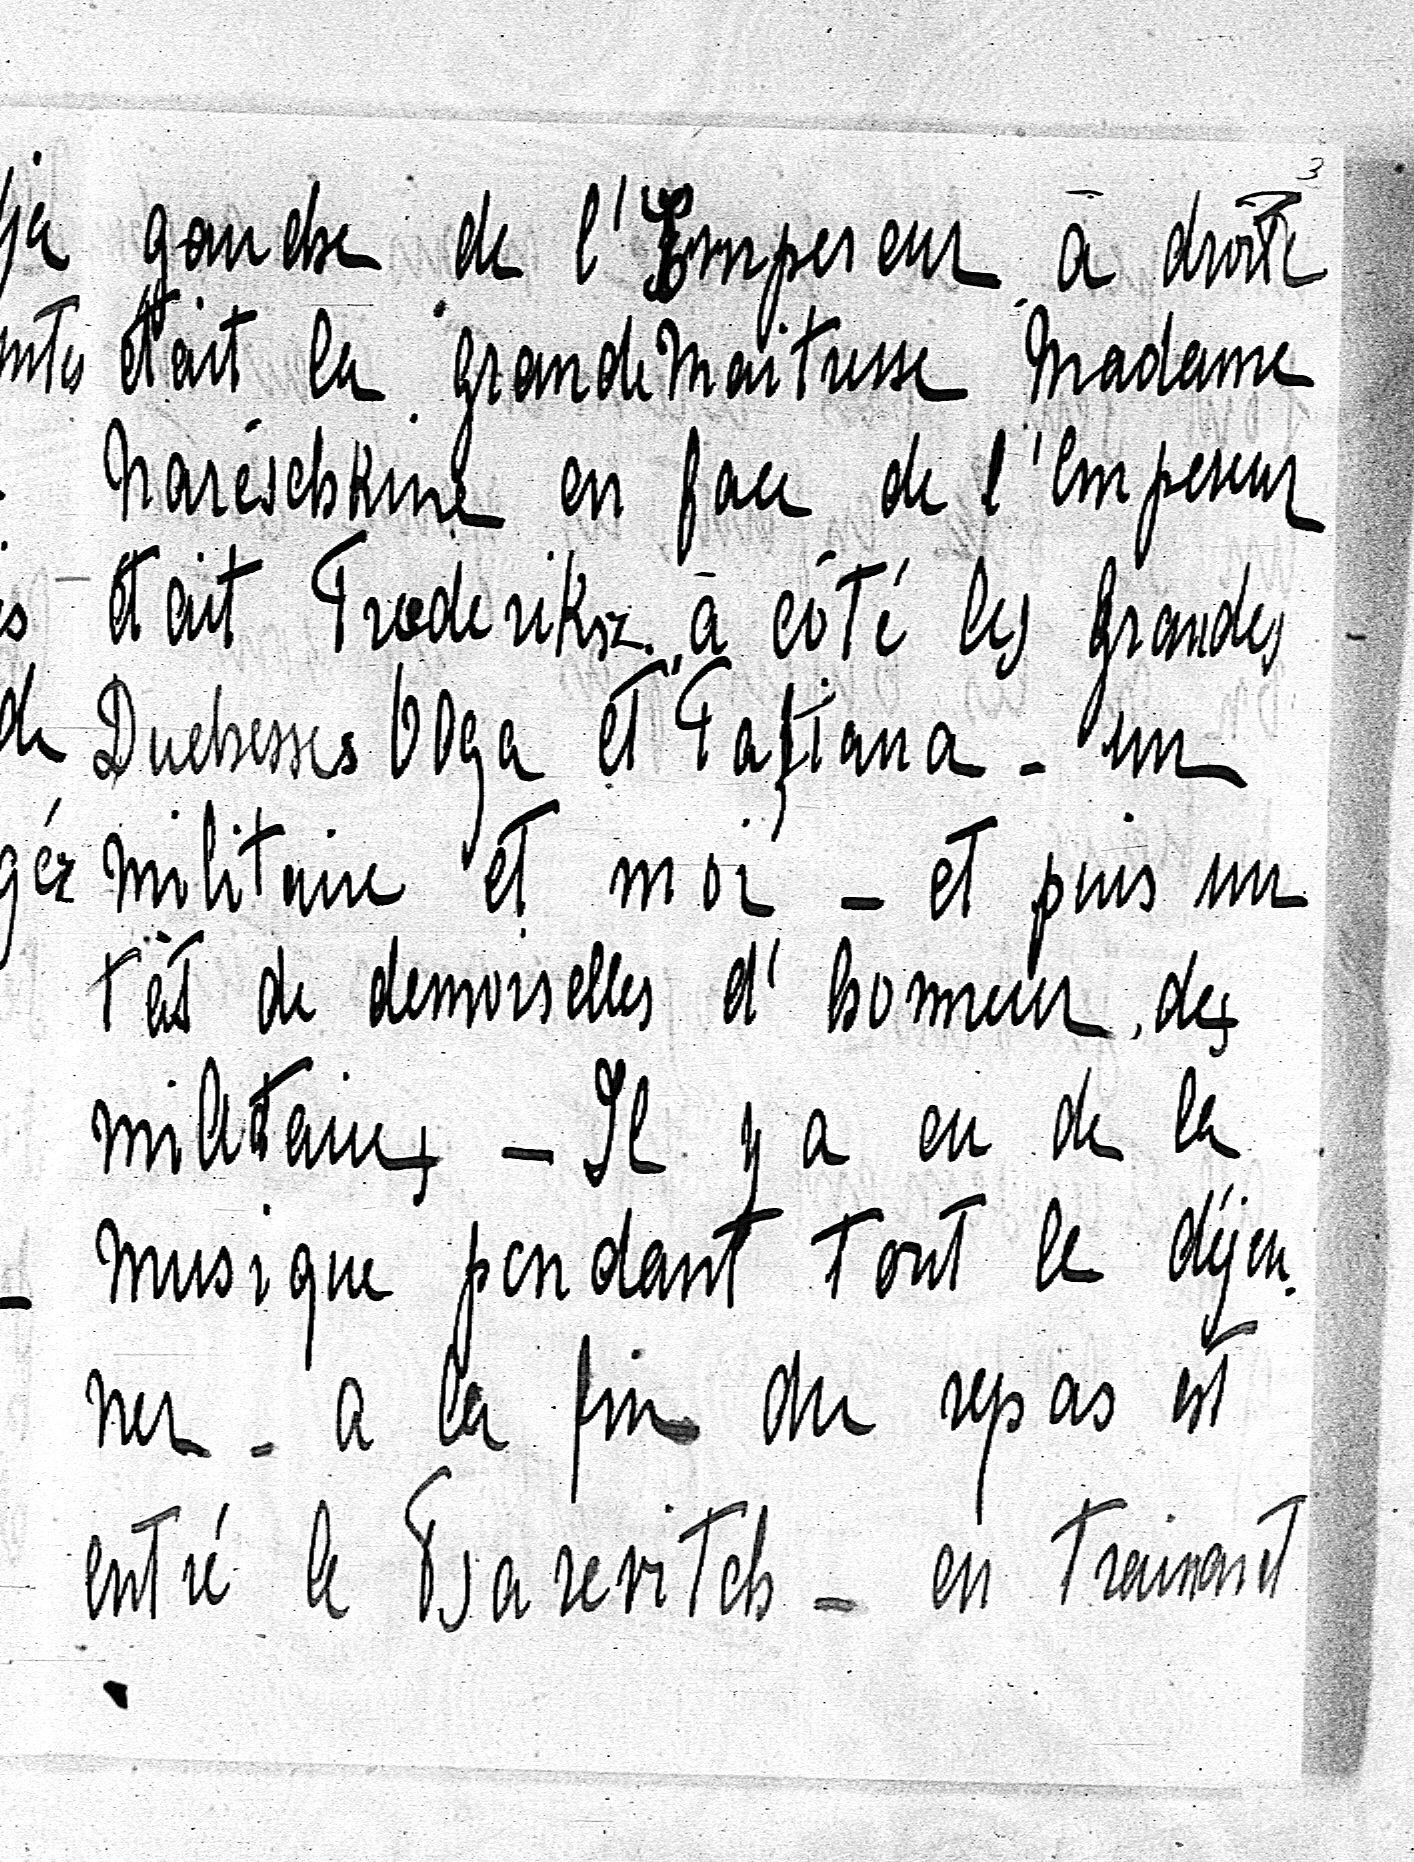 3
gauche de l'Empereur à droite
était la grande Maitresse Madame
Naréschkine en face de l'Empereur
était Fréderiksz. à côté les Grandes
Duchesses Olga et Tatiana - un
militaire et moi - et puis un
tas de demoiselles d'honneur, des
militaires - Il y a eu de la
musique pendant tout le déjeu-
ner - a la fin du repas est
entré le Tsarevitch - en trainant